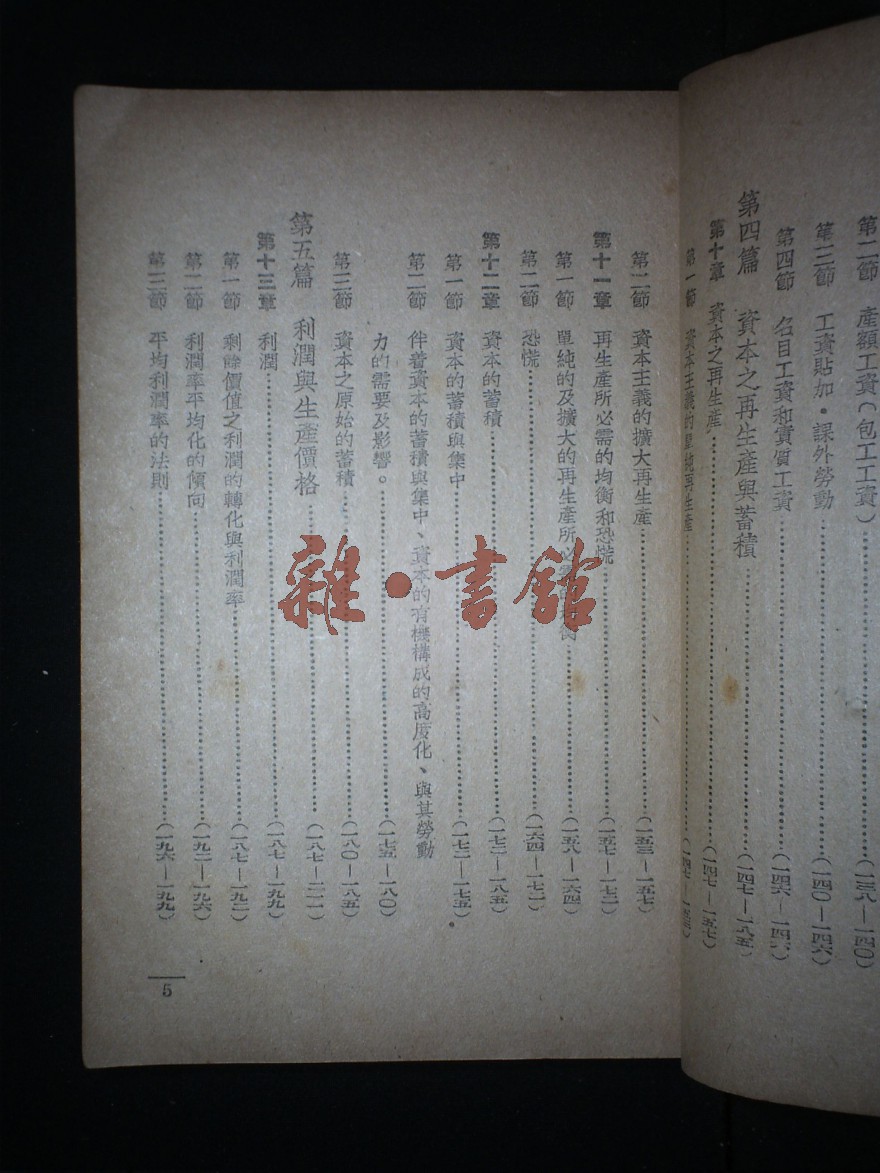 第二節 產額工資(包工工資)……(一三八—一四〇)
第三節 工資貼加・課外勞動……(一四〇—一四六)
第四節 名目工資和實質工資……(一四六—一四六)
第四篇 資本之再生產與蓄積……(一四七—一八五)
第十章 資本之再生產……(一四七—一五七)
第一節 資本主義的單純再生產……(一四七—一五三)
第二節 資本主義的擴大再生產……(一五三—一五七)
第十一章 再生產所必需的均衡和恐慌……(一五七—一七二)
第一節 單純的及擴大的再生產所必需的均衡……(一五八—一六四)
第二節 恐慌……(一六四—一七二)
第十二章 資本的蓄積……(一七二—一八五)
第一節 資本的蓄積與集中……(一七二—一七五)
第二節 伴着資本的蓄積與集中、資本的有機構成的高度化、與其勞動
力的需要及影響。……(一七五—一八〇)
第三節 資本之原始的蓄積……(一八〇—一八五)
第五篇 利潤與生產價格……(一八七—二一一)
第十三章 利潤……(一八七—一九九)
第一節 剩餘價值之利潤的轉化與利潤率……(一八七—一九二)
第二節 利潤率平均化的傾向……(一九二—一九六)
第三節 平均利潤率的法則……(一九六—一九九)
5
雜・書館